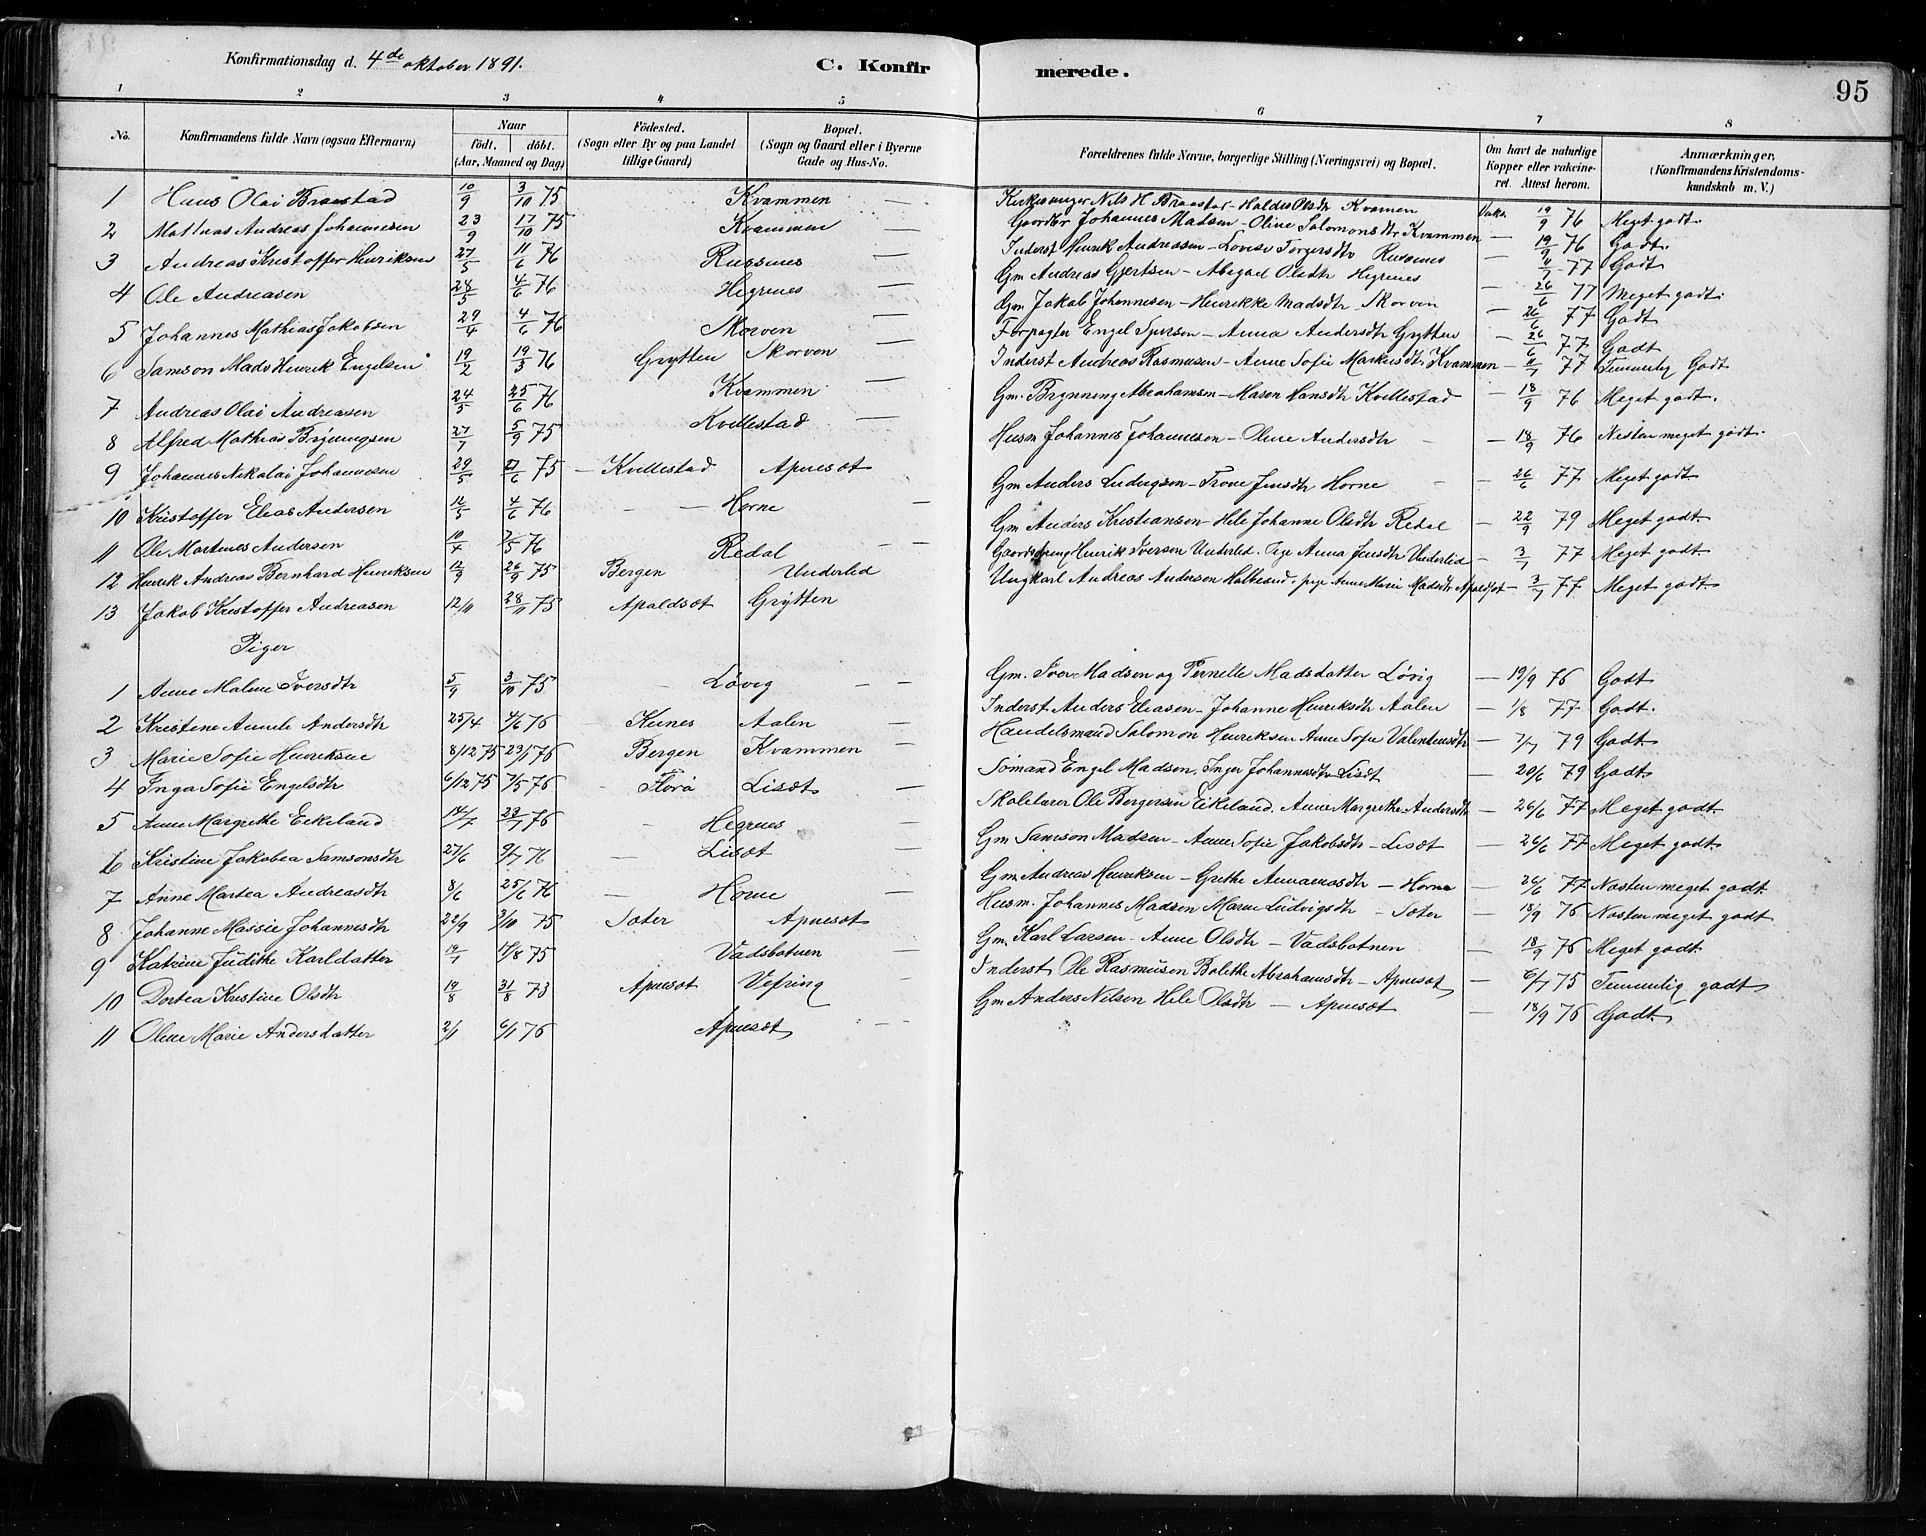 Konfirmationsdag d. 4de oktober 1891. C. Konfirmerede. 95
1 2 3 4 5 6 7 8
No. Konfirmandens fulde Navn (ogsaa Efternavn) Naar født. døbt. (Aar, Maaned og Dag) Fødested. (Sogn eller By og paa Landet tillige Gaard) Bopæl. (Sogn og Gaard eller i Byerne Gade og Hus-No. Forældrenes fulde Navne, borgerlige Stilling (Næringsvei) og Bopæl. Om havt de naturlige Kopper eller vakcineret. Attest herom. Anmærkninger. (Konfirmandens Kristendomskundskab m. V.)
1 Hans Olai Braestad 10/9 3/10 75 Kvammen — Kirkesanger Nils H. Braestad - Olsdtr Kvamen Vakc. 19/9 76 Meget godt
2 Mathias Andreas Johannesen 23/9 17/10 75 Kvammen — Gaardbr Johannes Madsen - Oline Salomonsdtr Kvammen — 19/9 76 Godt.
3 Andreas Kristoffer Henriksen 27/5 11/6 76 Russenes — Inderst Henrik Andreasen - Lovise Torgersdtr Russenes — 11/7 77 Godt
4 Ole Andreasen 28/5 4/6 76 Hegrenes — Gm Andreas Gjertsen - Abigael Olsdtr Hegrenes — 26/6 77 Meget godt
5 Johannes Mathias Jakobsen 29/4 4/6 76 Skorven — Gm Jakob Johannesen - Henrikke Madsdtr Skorven — 26/6 77 Godt
6 Samson Mads Henrik Engelsen 19/2 19/3 76 Grytten Skorven — Forpagter Engel Iversen - Anna Andersdtr Grytten — 26/6 77 Godt
7 Andreas Olai Andreasen 24/5 25/6 76 Kvammen — Inderst Andreas Rasmusen - Anne Sofie Markusdtr Kvammen — 11/7 77 Temmelig Godt
8 Alfred Mathias Bryningsen 27/7 5/9 75 Kvillestad — Gm. Brynning Abrahamsen - Maren Hansdtr Kvillestad — 18/9 76 Meget godt.
9 Johannes Nikolai Johannesen 29/5 /6 75 — Kvillestad Apnesæt Husm Johannes Johannesen - Oline Andersdtr — — 18/9 76 Nesten meget godt.
10 Kristoffer Elias Andersen 12/5 4/6 76 — — Horne — Gm Anders Ludvigsen - Trone Jensdtr Horne — — 26/6 77 Meget godt
11 Ole Martines Andersen 10/4 7/5 76 Redal — — Gm Anders Kristiansen - Hele Johanne Olsdtr Redal — 22/9 79 Meget godt.
12 Henrik Andreas Bernhard Henriksen 12/9 26/9 75 Bergen Underlid Gaardsdreng Henrik Iversen Underlid. Pige Anna Jensdtr Underlid — 3/7 77 Meget godt
13 Jakob Kristoffer Andreasen 12/11 28/11 75 Apaldsæt Grytten Ungkarl Andreas Andersen Halbrand. pige Anne Marie Madsdtr Apaldsæt — 3/7 77 Meget godt.
Piger
1 Anne Malene Iversdtr 5/9 3/10 75 — Løvig — — Gm. Iver Madsen og Pernille Madsdatter Løvig — 19/9 76 Godt
2 Kristene Amule Andersdtr 25/4 4/6 76 — Kines Aalen — Inderst Anders Eliasen - Johanne Henriksdtr Aalen — 1/8 77 Godt.
3 Marie Sofie Henriksen 8/12 75 23/1 76 Bergen Kvammen — Handelsmand Salomon Henriksen Anne Sofie Valentinsdtr — 7/7 79 Godt.
4 Inga Sofie Engelsdtr 6/12 75 7/5 76 — Florø Lisæt — Sømand Engel Madsen. Inger Johannesdtr Lisæt — 20/6 79 Godt
5 Anne Margrethe Eikeland 14/7 23/7 76 — Hegrenes — Skolelærer Ole Bergersen Eikeland. Anne Margrethe Andersdtr — 26/6 77 Meget godt.
6 Kristine Jakobea Samsonsdtr 27/6 9/7 76 — Lisæt — Gm Samson Madsen - Anne Sofie Jakobsdtr - Lisæt — 26/6 77 Meget godt.
7 Anne Martea Andreasdtr 8/6 25/6 76 — Horne — Gm Andreas Henriksen - Grethe Annanasdtr - Horne — 26/6 77 Næsten meget godt
8 Johanne Massie Johannesdtr 22/9 3/10 75 Sæter Apnesæt Husm. Johannes Madsen Marie Ludvigsdtr - Sæter — 18/9 76 Næsten meget godt
9 Katrine Judithe Karldatter 19/7 15/8 75 Vadsbotnen — Gm. Karl Larsen - Anne Olsdtr - Vadsbotnen — 18/9 76 Meget godt.
10 Dortea Kristine Olsdtr 19/8 31/8 73 Apnesæt Vefring — Inderst Ole Rasmusen Bolethe Abrahamsdtr - Apnesæt — 6/7 75 Temmelig godt
11 Oline Marie Andersdatter 2/1 6/1 76 Apnesæt — Gm Anders Nilsen Hele Olsdtr — Apnesæt — 18/9 76 Godt.